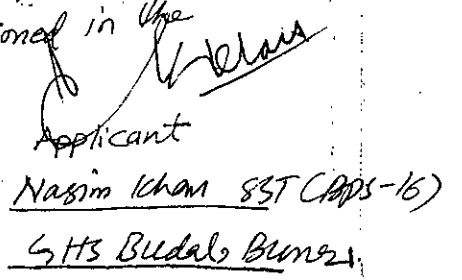 oned in the
Applicant
Nasim Khan SST (BPS-16)
GHS Budal, Buner.